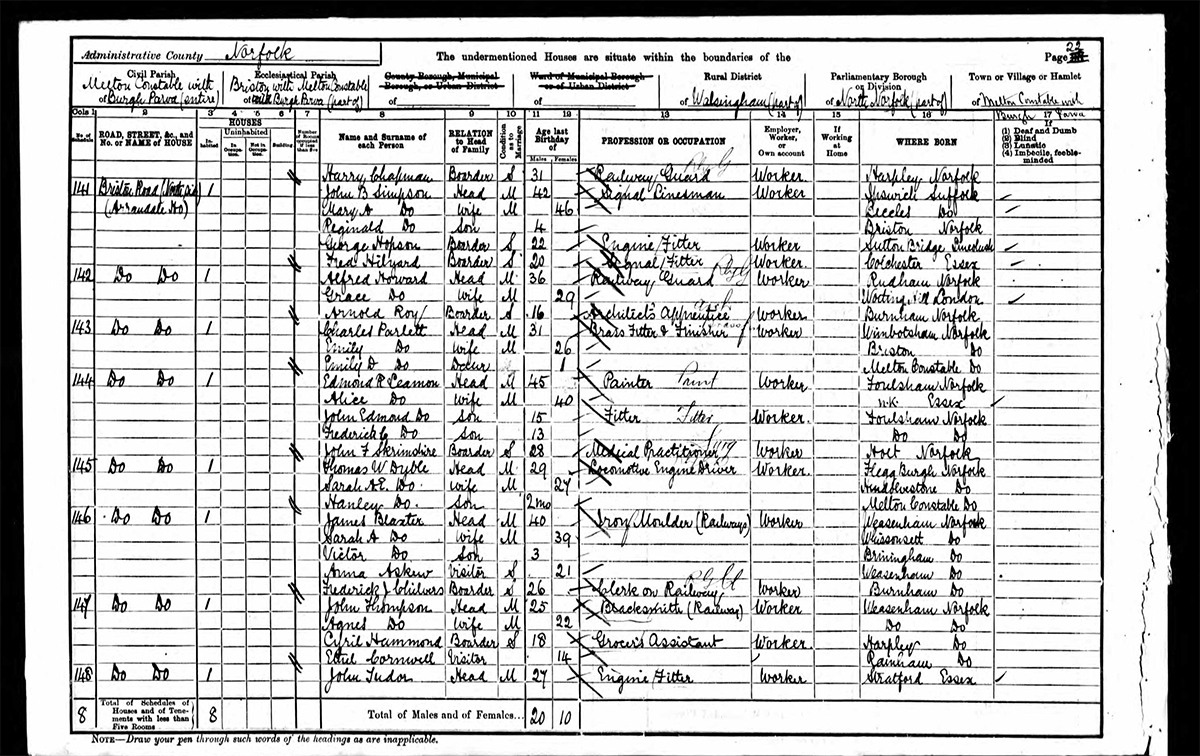 Administrative County Norfolk
The undermentioned Houses are situate within the boundaries of the
Page 22
Civil Parish
of Melton Constable with Burgh Parva (entire)
Ecclesiastical Parish
of Briston with Melton Constable with Burgh Parva (part of)
County Borough, Municipal Borough, or Urban District
of
Ward of Municipal Borough or of Urban District
of
Rural District
of Walsingham (part of)
Parliamentary Borough or Division
of North Norfolk (part of)
Town or Village or Hamlet
of Melton Constable with Burgh Parva
Cols 1 2 3 4 5 6 7 8 9 10 11 12 13 14 15 16 17
No. of Schedule
ROAD, STREET, &c., and No. or NAME of HOUSE
HOUSES
Inhabited
Uninhabited
In Occupation.
Not in Occupation.
Building
Number of Rooms occupied if less than five
Name and Surname of each Person
RELATION to Head of Family
Condition as to Marriage
Age last Birthday of
Males Females
PROFESSION OR OCCUPATION
Employer, Worker, or Own account
If Working at Home
WHERE BORN
If
(1) Deaf and Dumb
(2) Blind
(3) Lunatic
(4) Imbecile, feeble-minded
Harry Chapman Boarder S 31 Railway Guard Worker Harpley Norfolk
141 Briston Road (North side) 1 John B Simpson Head M 42 Signal Linesman Worker Ipswich Suffolk
(Arrandale Ho) Mary A Do Wife M 46 Beccles Do
Reginald Do Son 4 Briston Norfolk
George Hopson Boarder S 22 Engine Fitter Worker Sutton Bridge
Fred Hilyard Boarder S 20 Signal Fitter Worker Colchester Essex
142 Do Do 1 Alfred Howard Head M 36 Railway Guard Worker Rudham Norfolk
Grace Do Wife M 29 Notting Hill London
Arnold Roy Boarder S 16 Architect's Apprentice Worker Burnham Norfolk
143 Do Do 1 Charles Parlett Head M 31 Brass Fitter & Finisher Worker Wimbotsham Norfolk
Emily Do Wife M 26 Briston Do
Emily D Do Daur 1 Melton Constable Do
144 Do Do 1 Edmond R Leamon Head M 45 Painter Paint Worker Foulsham Norfolk
Alice Do Wife M 40 N.K. Essex
John Edmond Do Son 15 Fitter Fitter Worker Foulsham Norfolk
Frederick C Do Son 13 Do Do
John F Skrimshire Boarder S 28 Medical Practitioner Worker Holt Norfolk
145 Do Do 1 Thomas W Dyble Head M 29 Locomotive Engine Driver Worker Flegg Burgh Norfolk
Sarah A E. Do. Wife M 27 Hindolvestone Do
Stanley Do. Son 2 mo Melton Constable Do
146 Do Do 1 James Blaxter Head M 40 Iron Moulder (Railways) Worker Weasenham Norfolk
Sarah A Do Wife M 39 Whissonsett Do
Victor Do Son 3 Briningham Do
Anna Askew Visitor S 21 Weasenham Do
Frederick J Chilvers Boarder S 26 Clerk on Railway Worker Burnham Do
147 Do Do 1 John Thompson Head M 25 Blacksmith (Railway) Worker Weasenham Norfolk
Agnes Do Wife M 22 Do Do
Cyril Hammond Boarder S 18 Grocer's Assistant Worker Harpley Do
Ethel Cornwell Visitor 14 Rainham Do
148 Do Do 1 John Tudor Head M 27 Engine Fitter Worker Stratford Essex
8 Total of Schedules of Houses and of Tenements with less than Five Rooms 8 Total of Males and of Females... 20 10
NOTE—Draw your pen through such words of the headings as are inapplicable.